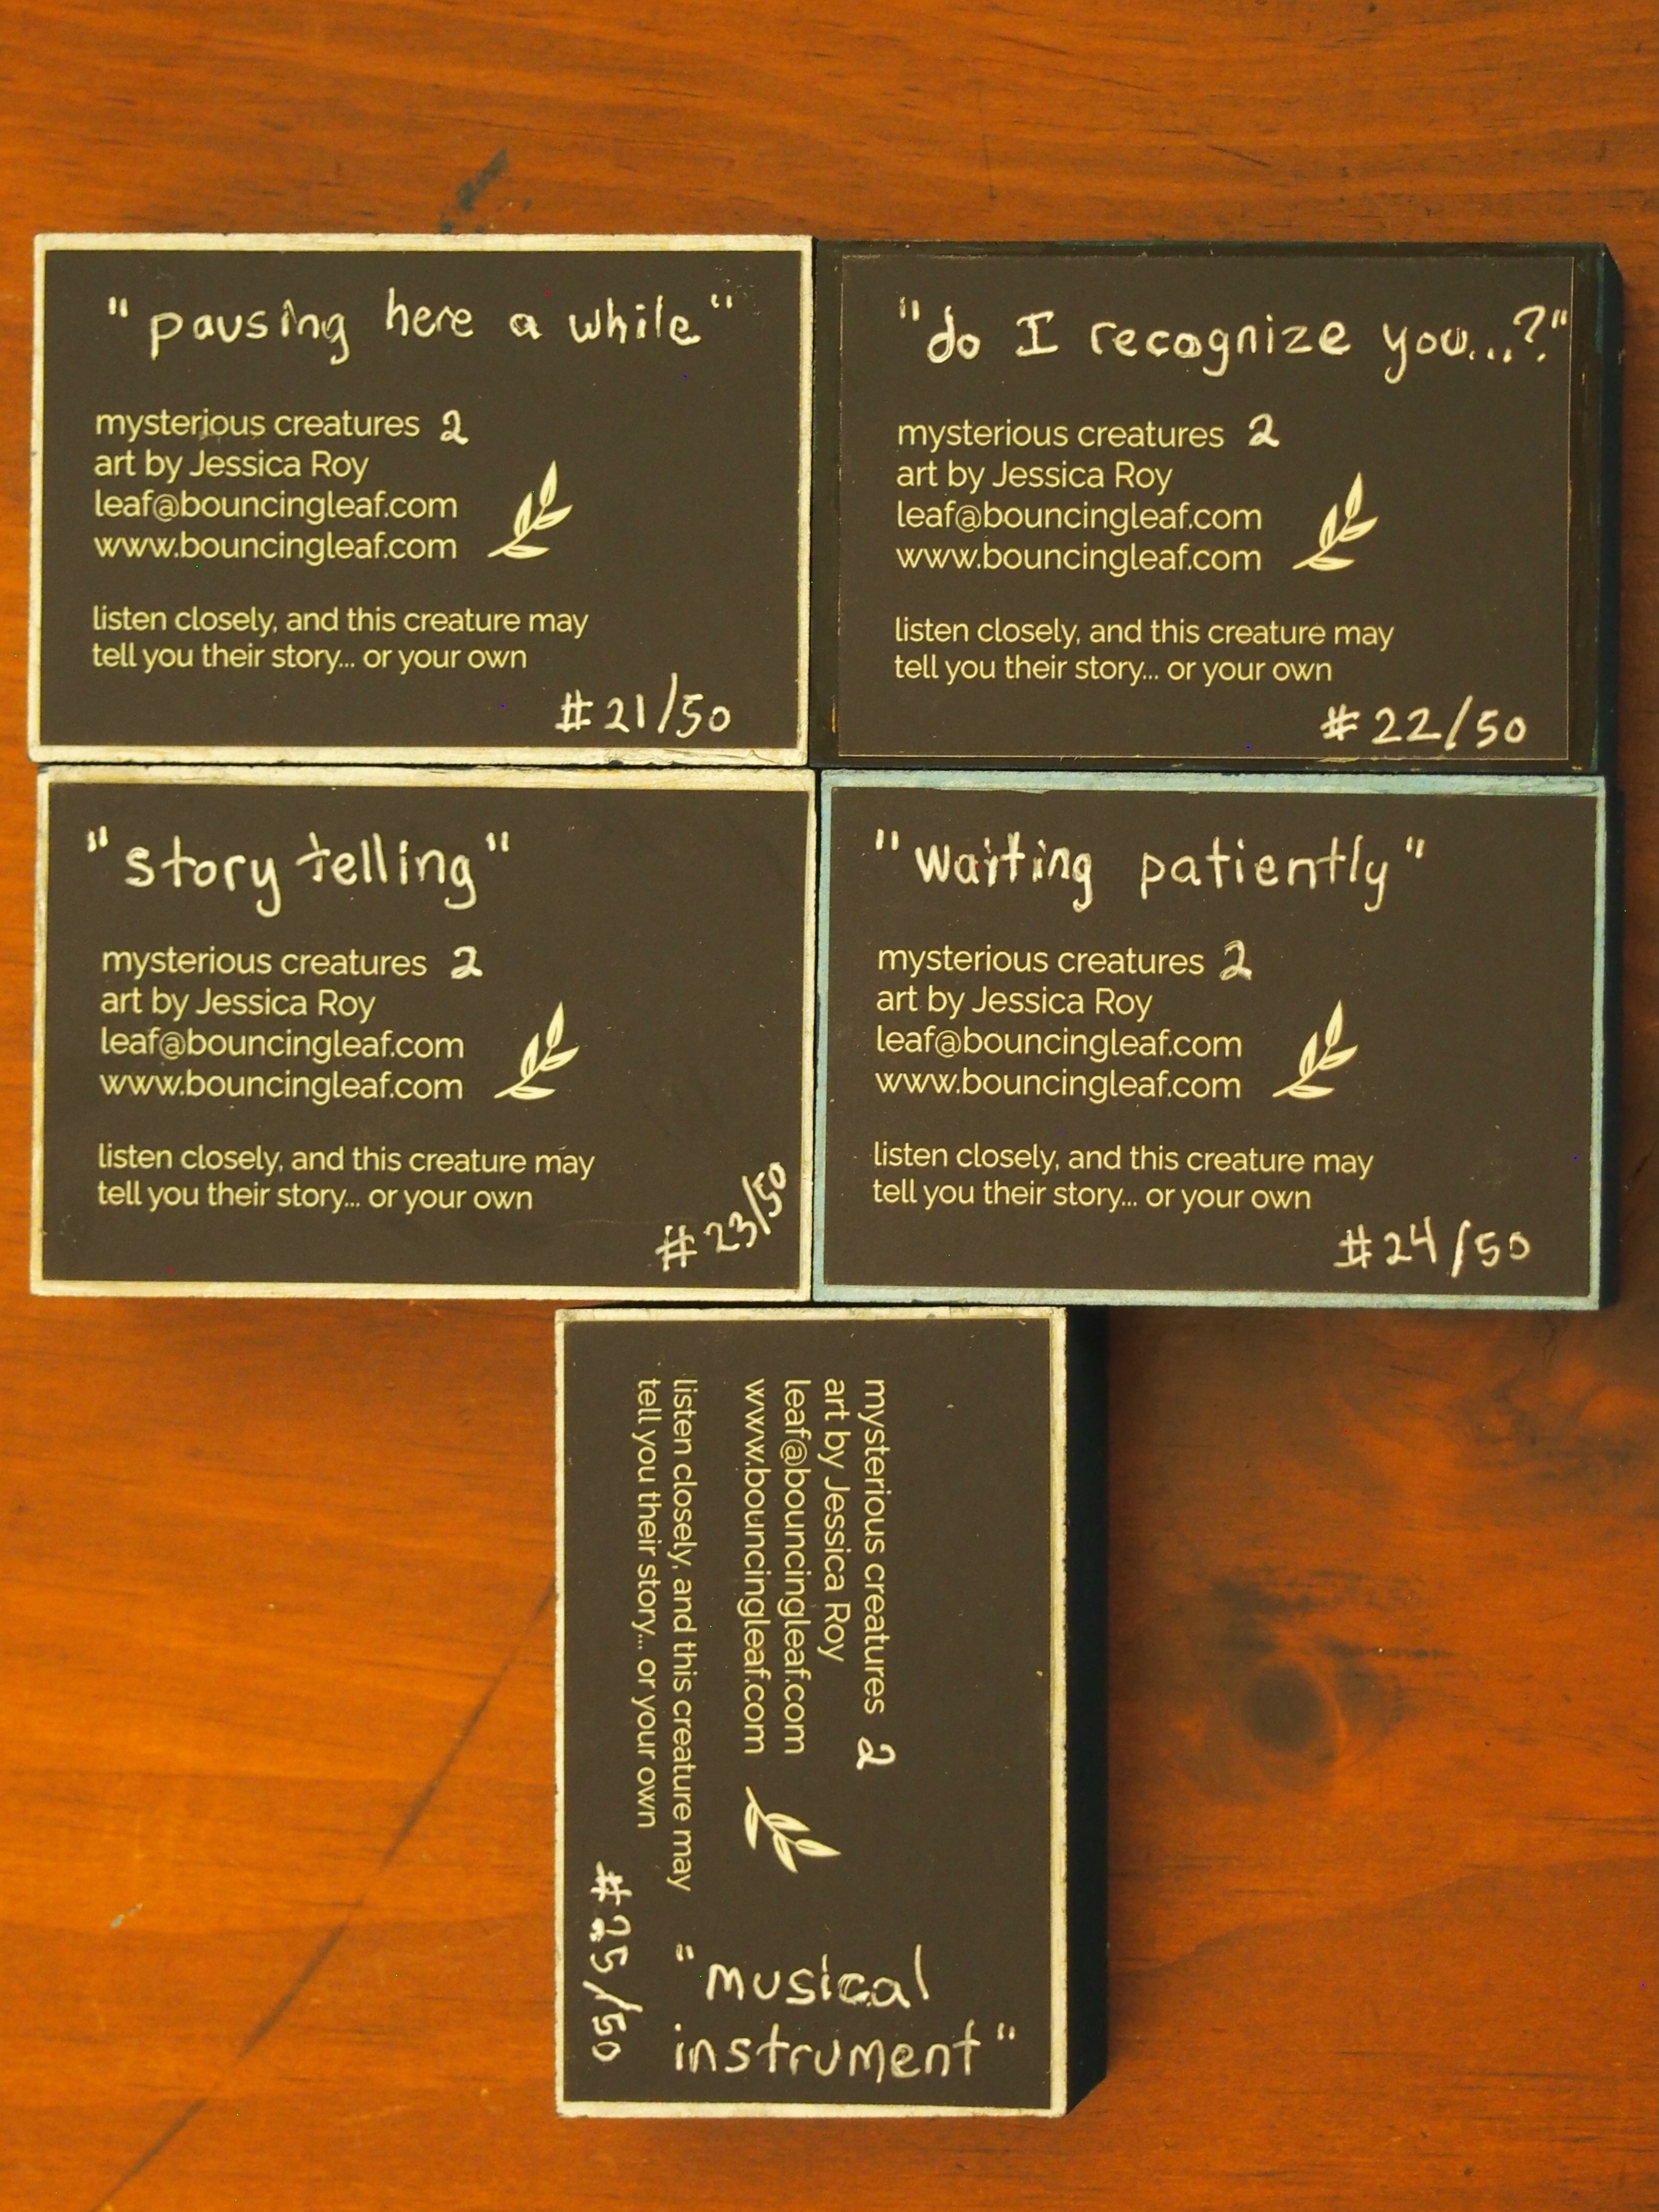 "pausing here a while"
mysterious creatures 2
art by Jessica Roy
leaf@bouncingleaf.com
www.bouncingleaf.com
listen closely, and this creature may
tell you their story... or your own
#21/50
"do I recognize you...?"
mysterious creatures 2
art by Jessica Roy
leaf@bouncingleaf.com
www.bouncingleaf.com
listen closely, and this creature may
tell you their story... or your own
#22/50
"story telling"
mysterious creatures 2
art by Jessica Roy
leaf@bouncingleaf.com
www.bouncingleaf.com
listen closely, and this creature may
tell you their story... or your own
#23/50
"waiting patiently"
mysterious creatures 2
art by Jessica Roy
leaf@bouncingleaf.com
www.bouncingleaf.com
listen closely, and this creature may
tell you their story... or your own
#24/50
mysterious creatures 2
art by Jessica Roy
leaf@bouncingleaf.com
www.bouncingleaf.com
listen closely, and this creature may
tell you their story... or your own
#25/50
"musical
instrument"